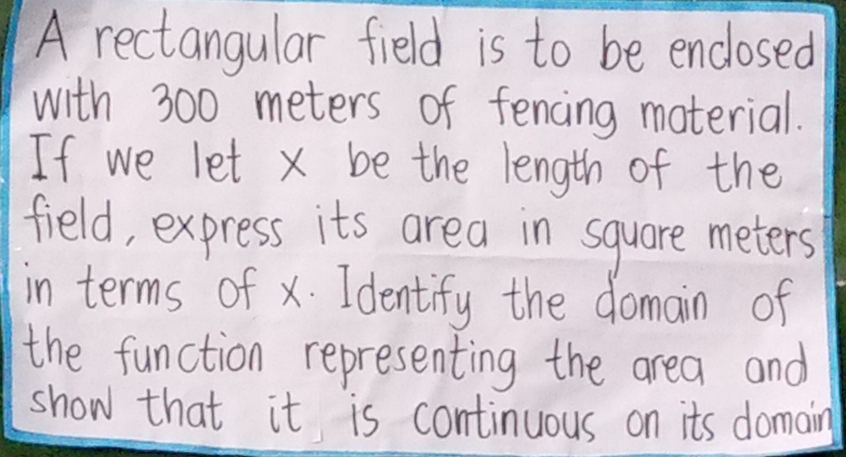 A rectangular field is to be enclosed
with 300 meters of fencing material.
If we let x be the length of the
field, express its area in square meters
in terms of x. Identify the domain of
the function representing the area and
show that it is continuous on its domain